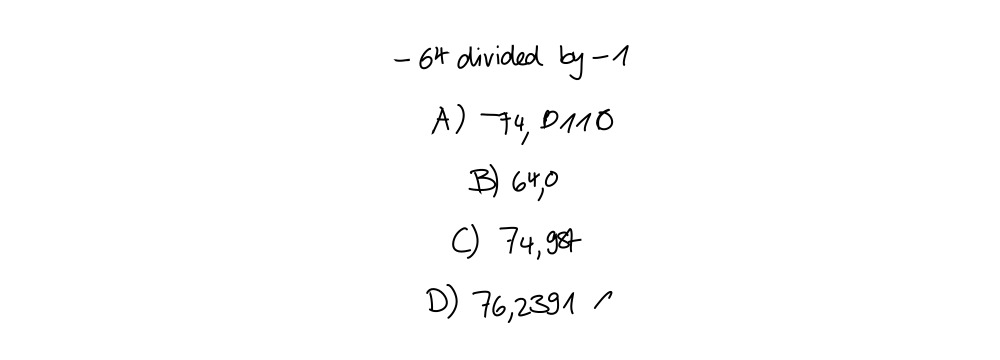 -64 divided by -1
A) -74,0110
B) 64,0
C) 74,987
D) 76,2391